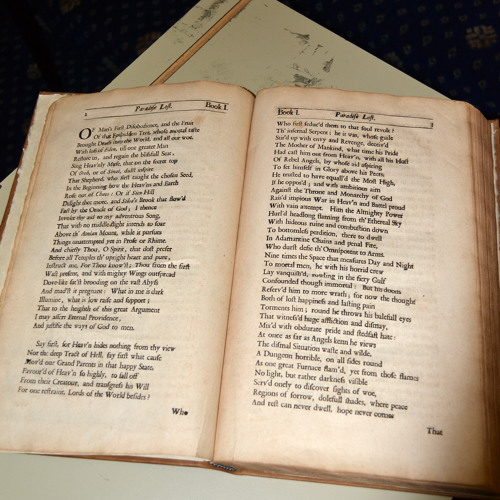 2
Paradise Lost.
Book I.
OF Man's First Disobedience, and the Fruit
Of that Forbidden Tree, whose mortal taste
Brought Death into the World, and all our woe,
With loss of Eden, till one greater Man
Restore us, and regain the blissful Seat,
Sing Heav'nly Muse, that on the secret top
Of Oreb, or of Sinai, didst inspire
That Shepherd, who first taught the chosen Seed,
In the Beginning how the Heav'ns and Earth
Rose out of Chaos: Or if Sion Hill
Delight thee more, and Siloa's Brook that flow'd
Fast by the Oracle of God; I thence
Invoke thy aid to my adventrous Song,
That with no middle flight intends to soar
Above th' Aonian Mount, while it pursues
Things unattempted yet in Prose or Rhime.
And chiefly Thou, O Spirit, that dost prefer
Before all Temples th' upright heart and pure,
Instruct me, For Thou know'st; Thou from the first
Wast present, and with mighty Wings outspread
Dove-like sat'st brooding on the vast Abyss
And mad'st it pregnant: What in me is dark
Illumine, what is low raise and support;
That to the heighth of this great Argument
I may assert Eternal Providence,
And justifie the ways of God to men.
Say first, for Heav'n hides nothing from thy view
Nor the deep Tract of Hell, say first what cause
Mov'd our Grand Parents in that happy State,
Favour'd of Heav'n so highly, to fall off
From their Creatour, and transgress his Will
For one restraint, Lords of the World besides?
Who
Book I.
Paradise Lost.
3
Who first seduc'd them to that foul revolt?
Th' infernal Serpent; he it was, whose guile
Stir'd up with envy and Revenge, deceiv'd
The Mother of Mankind, what time his Pride
Had cast him out from Heav'n, with all his Host
Of Rebel Angels, by whose aid aspiring
To set himself in Glory above his Peers,
He trusted to have equall'd the Most High,
If he oppos'd; and with ambitious aim
Against the Throne and Monarchy of God
Rais'd impious War in Heav'n and Battel proud
With vain attempt. Him the Almighty Power
Hurl'd headlong flaming from th' Ethereal Sky
With hideous ruine and combustion down
To bottomless perdition, there to dwell
In Adamantine Chains and penal Fire,
Who durst defie th' Omnipotent to Arms.
Nine times the Space that measures Day and Night
To mortal men, he with his horrid crew
Lay vanquish'd, rowling in the fiery Gulf
Confounded though immortal: But his doom
Reserv'd him to more wrath; for now the thought
Both of lost happiness and lasting pain
Torments him; round he throws his baleful eyes
That witness'd huge affliction and dismay,
Mix'd with obdurate pride and stedfast hate:
At once as far as Angels kenn he views
The dismal Situation waste and wilde,
A Dungeon horrible, on all sides round
As one great Furnace flam'd, yet from those flames
No light, but rather darkness visible
Serv'd onely to discover sights of woe,
Regions of sorrow, doleful shades, where peace
And rest can never dwell, hope never comes
That